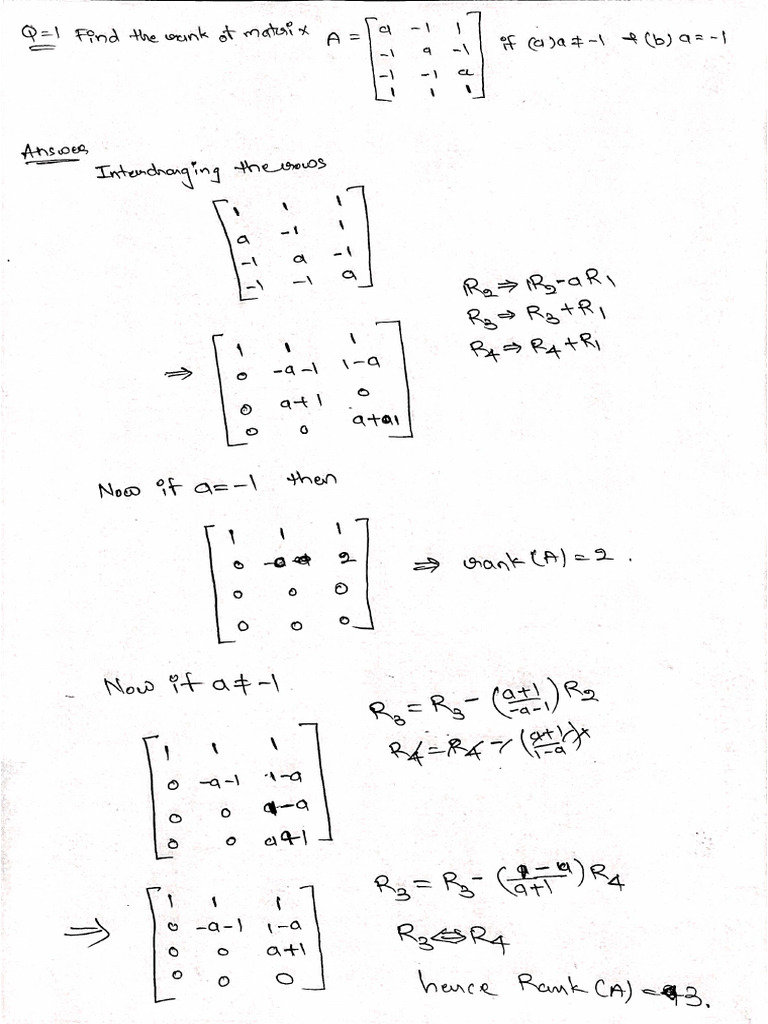 Q=1 Find the rank of matrix A = [a -1 1
-1 a -1
-1 -1 a
1 1 1] if (a) a ≠ -1 & (b) a = -1
Answer
Interchanging the rows
[1 1 1
a -1 1
-1 a -1
-1 -1 a]
R2 ⇒ R2-aR1
R3 ⇒ R3+R1
R4 ⇒ R4+R1
⇒ [1 1 1
0 -a-1 1-a
0 a+1 0
0 0 a+1]
Now if a=-1 then
[1 1 1
0 2
0 0 0
0 0 0] ⇒ rank(A)=2.
Now if a ≠ -1
R3 = R3 - (a+1/-a-1) R2
R4 = R4 - (a+1/1-a)
[1 1 1
0 -a-1 1-a
0 0 -a
0 0 a+1]
R3 = R3 - (-a/a+1) R4
R3 ⇔ R4
⇒ [1 1 1
0 -a-1 1-a
0 0 a+1
0 0 0]
hence Rank(A) = 3.